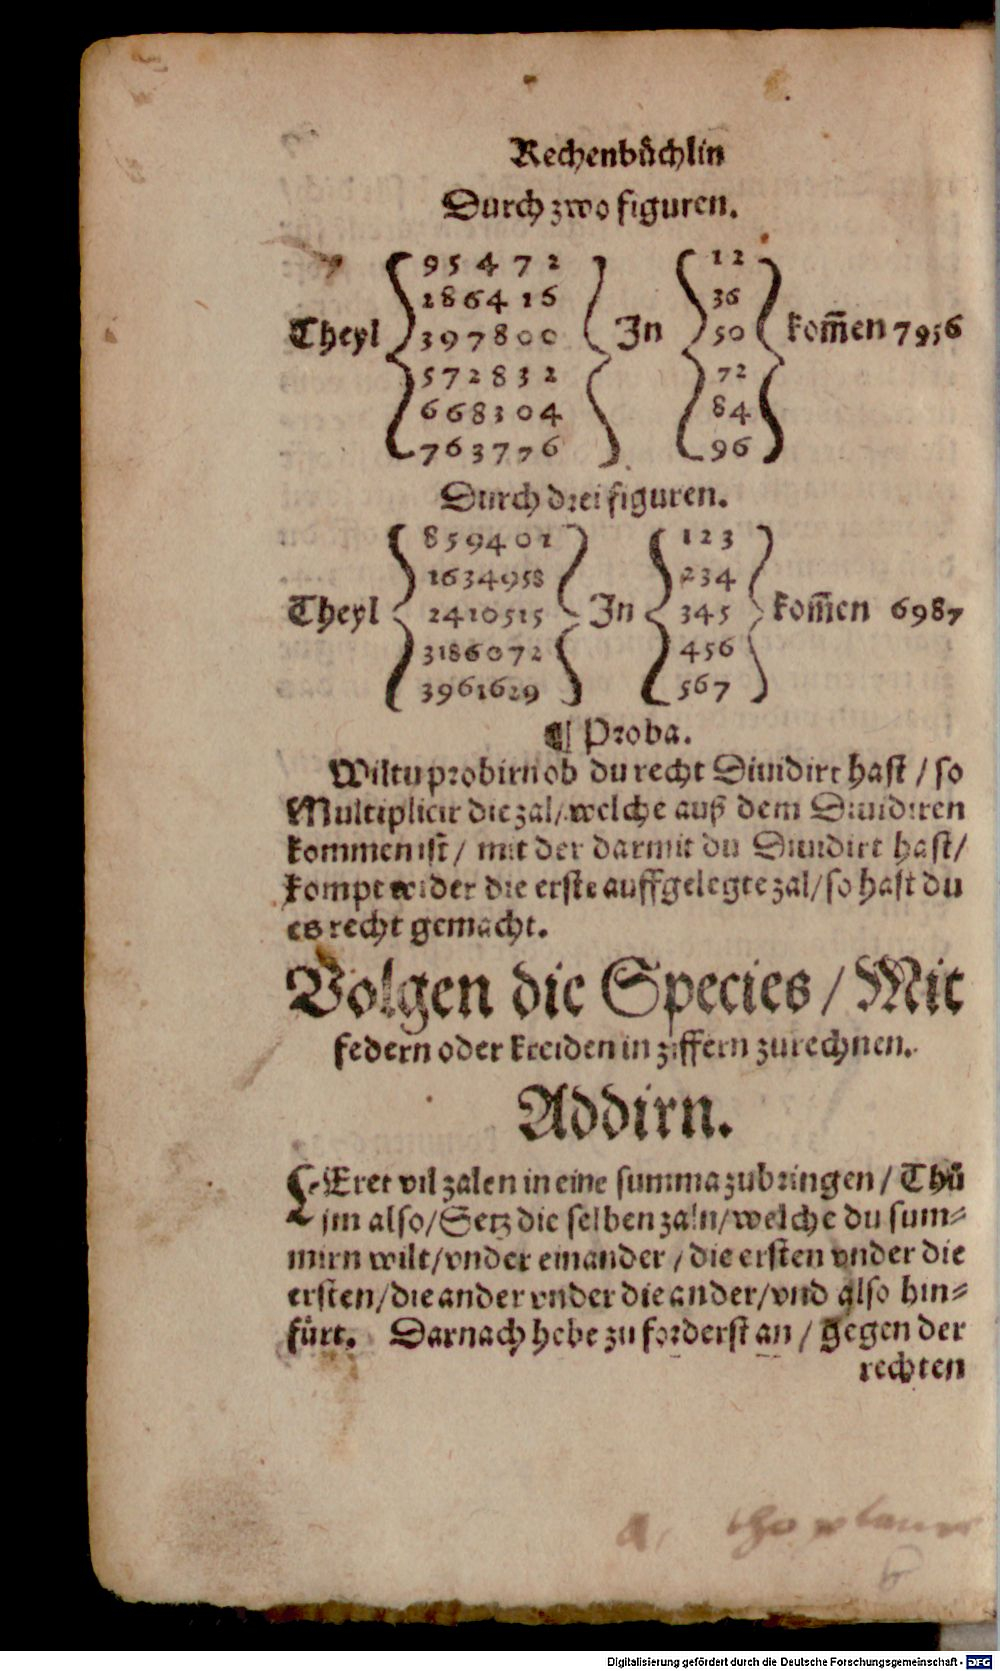 Rechenbůchlin
Durch zwo figuren.
Theyl
95472
286416
397800
572832
668304
763776
In
12
36
50
72
84
96
kom̃en 7956
Durch drei figuren.
Theyl
859401
1634958
2410515
3186072
3961629
In
123
234
345
456
567
kom̃en 6987
¶ Proba.
Wiltu probirn ob du recht Diuidirt hast / so
Multiplicir die zal / welche auß dem Diuidiren
kommen ist / mit der darmit du Diuidirt hast /
kompt wider die erste auffgelegte zal / so hast du
es recht gemacht.
Volgen die Species / Mit
federn oder kreiden in ziffern zurechnen.
Addirn.
LEret vil zalen in eine summa zubringen / Thů
jm also / Setz die selben zaln / welche du sum⸗
mirn wilt / vnder einander / die ersten vnder die
ersten / die ander vnder die ander / vnd also hin⸗
fürt. Darnach hebe zu forderst an / gegen der
rechten
Digitalisierung gefördert durch die Deutsche Forschungsgemeinschaft - DFG